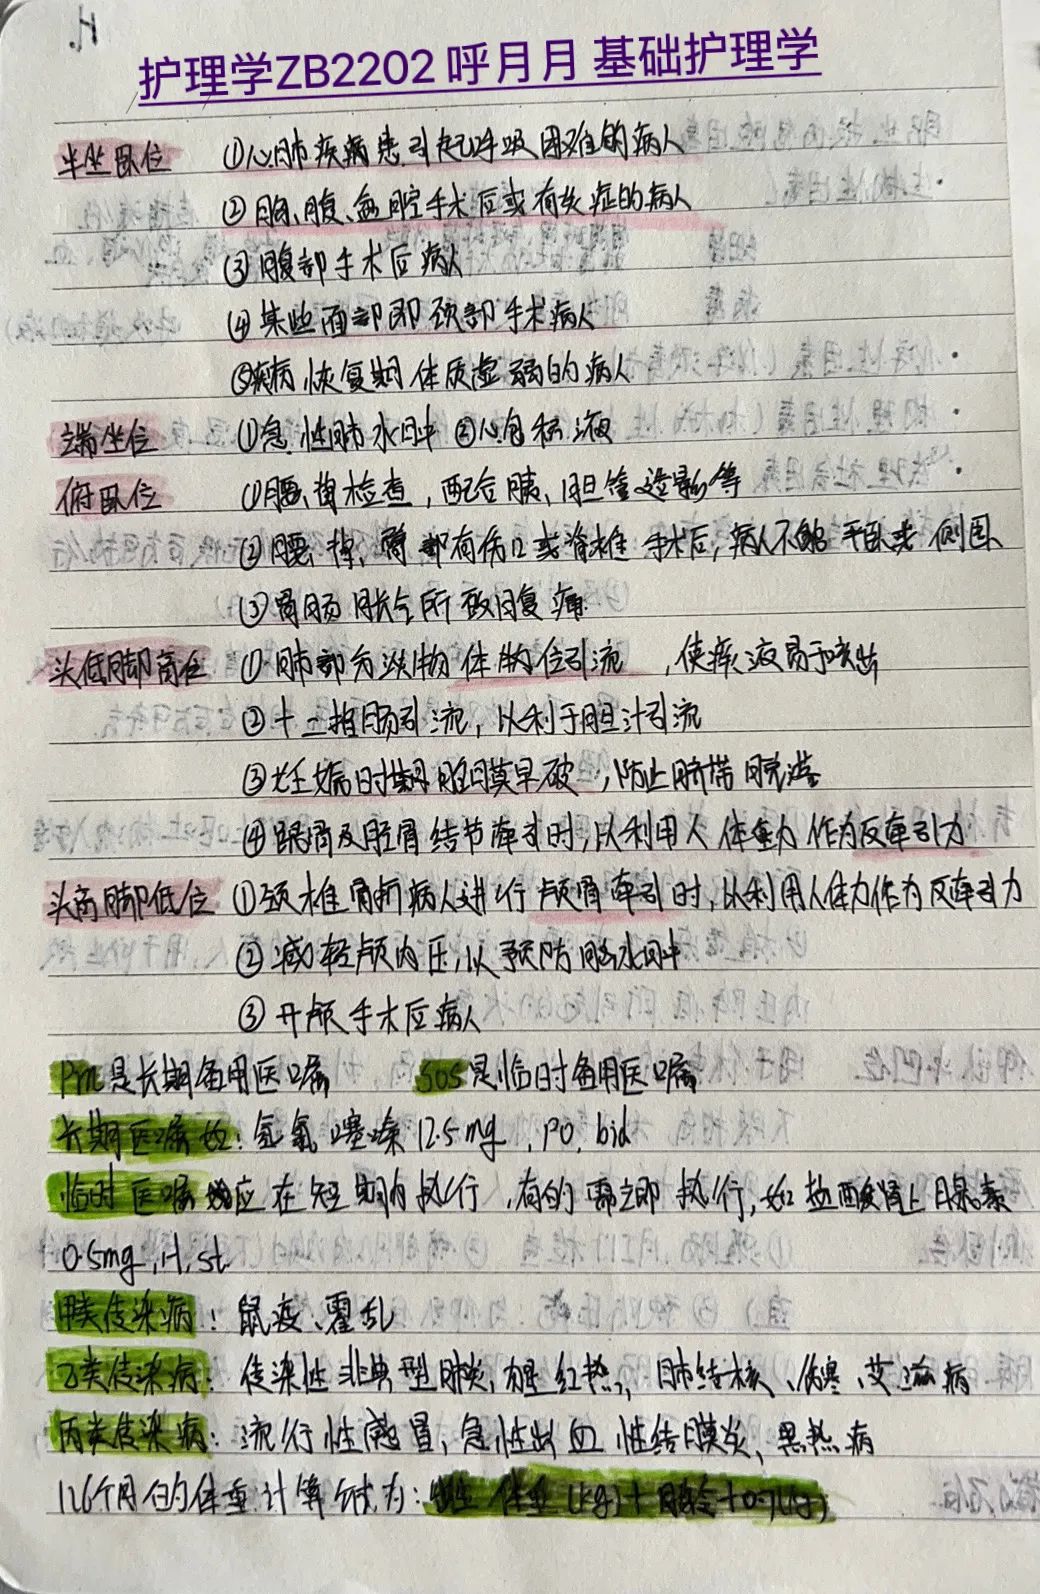 护理学ZB2202 呼月月 基础护理学
半坐卧位 ①心肺疾病患引起呼吸困难的病人
②胸、腹、盆腔手术后或有炎症的病人
③腹部手术后病人
④某些面部即颈部手术病人
⑤疾病恢复期体质虚弱的病人
端坐位 ①急性肺水肿 ②心包积液
俯卧位 ①腰背检查,配合胰、胆管造影等
②腰、背、臀部有伤口或脊椎手术后,病人不能平卧或侧卧
③胃肠胀气所致腹痛
头低脚高位 ①肺部分泌物体位引流,使痰液易于咳出
②十二指肠引流,以利于胆汁引流
③妊娠时期胎膜早破,防止脐带脱落
④跟骨及胫骨结节牵引时,以利用人体重力作为反牵引力
头高脚低位 ①颈椎骨折病人进行颅骨牵引时,以利用人体力作为反牵引力
②减轻颅内压,以预防脑水肿
③开颅手术后病人
Prn是长期备用医嘱 SOS是临时备用医嘱
长期医嘱如:氢氯噻嗪12.5mg,PO,bid
临时医嘱应在短期内执行,有的需立即执行,如盐酸肾上腺素
0.5mg,H,st
甲类传染病:鼠疫、霍乱
乙类传染病:传染性非典型肺炎,猩红热,肺结核、伤寒、艾滋病
丙类传染病:流行性感冒,急性出血性结膜炎、黑热病
1~6个月的体重计算公式为:出生体重(kg)+月龄+0.7(kg)